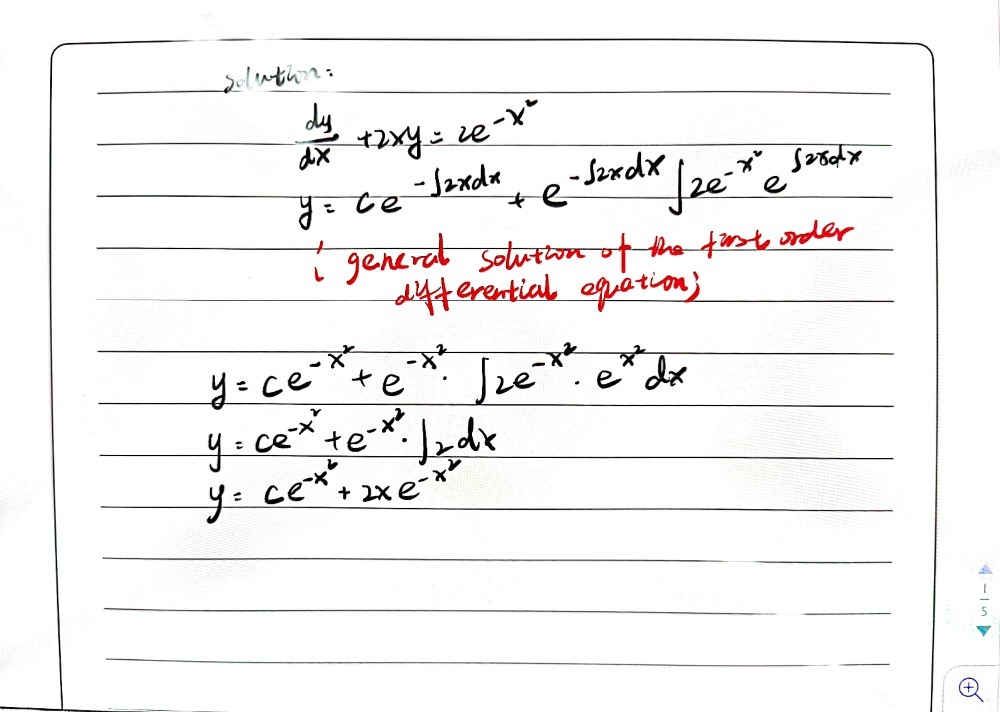 solution:
dy/dx + 2xy = 2e^{-x²}
y = ce^{-∫2xdx} + e^{-∫2xdx} ∫2e^{-x²} e^{∫2xdx}
( general solution of the first order
differential equation;
y = ce^{-x²} + e^{-x²} · ∫2e^{-x²} · e^{x²} dx
y = ce^{-x²} + e^{-x²} · ∫2dx
y = ce^{-x²} + 2xe^{-x²}
1
5